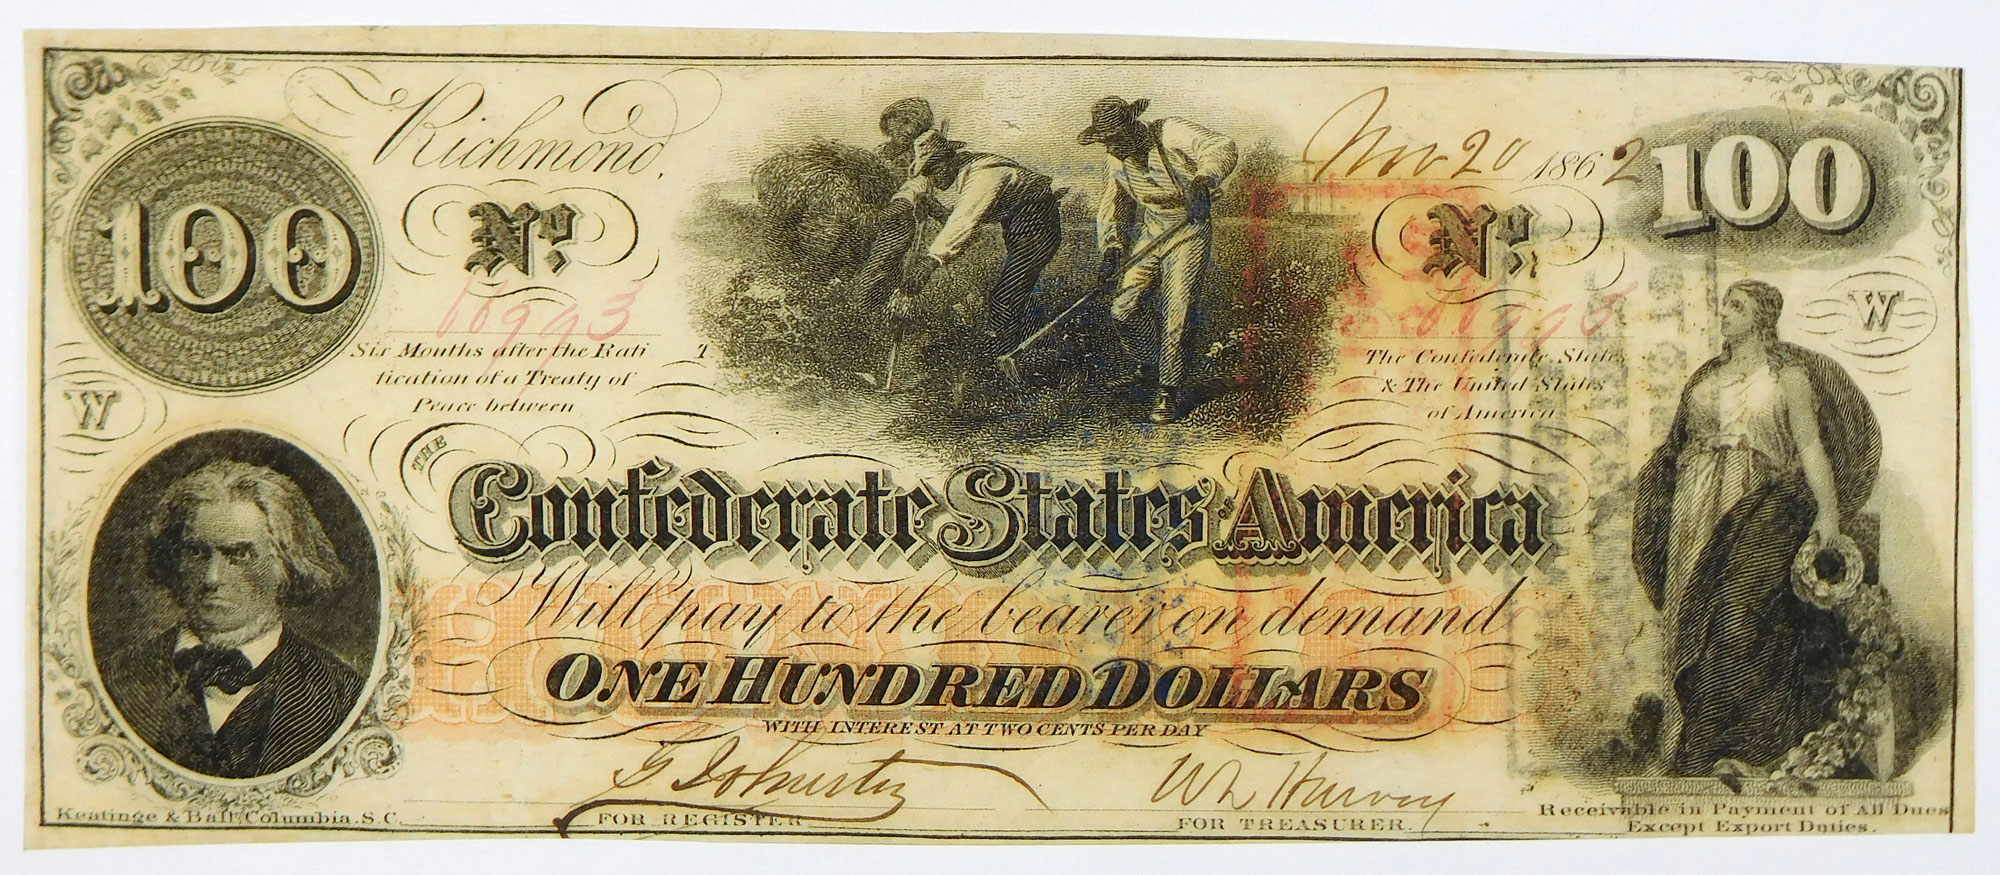 Richmond, Nov 20 1862
100 100
No. No.
W
Six Months after the Rati T The Confederate States
fication of a Treaty of & The United States
Peace between of America
W
THE
Confederate States of America
Will pay to the bearer on demand
HUNDRED
ONE HUNDRED DOLLARS
WITH INTEREST AT TWO CENTS PER DAY
Keatinge & Ball, Columbia, S.C. FOR REGISTER FOR TREASURER.
Receivable in Payment of All Dues
Except Export Duties.